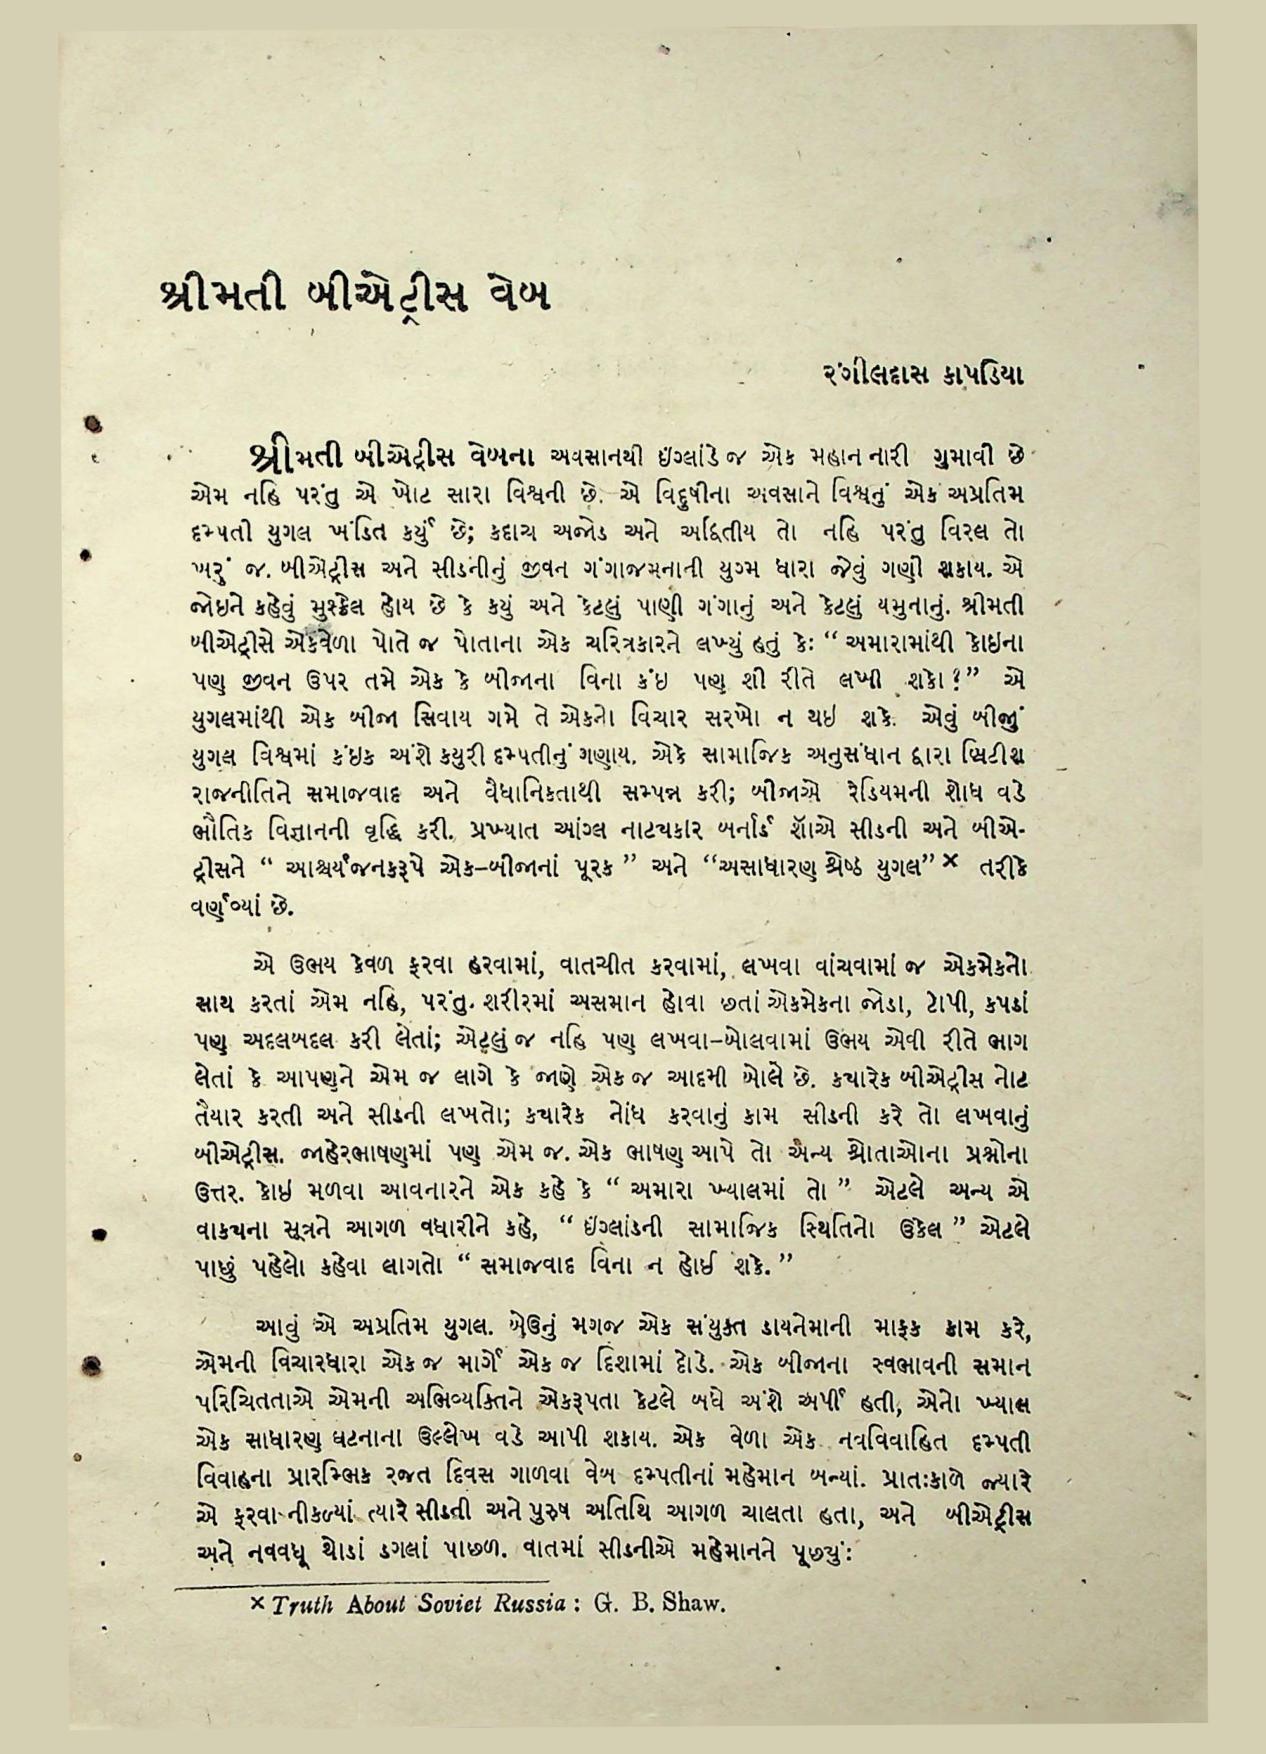 શ્રીમતી બીએટ્રીસ વેબ
રંગીલદાસ કાપડિયા
શ્રીમતી બીએટ્રીસ વેબના અવસાનથી ઇંગ્લાંડે જ એક મહાન નારી ગુમાવી છે
એમ નહિ પરંતુ એ ખોટ સારા વિશ્વની છે. એ વિદુષીના અવસાને વિશ્વનું એક અપ્રતિમ
દમ્પતી યુગલ ખંડિત કર્યું છે; કદાચ અજોડ અને અદ્વિતીય તો નહિ પરંતુ વિરલ તો
ખરું જ. બીએટ્રીસ અને સીડનીનું જીવન ગંગાજમનાની યુગ્મ ધારા જેવું ગણી શકાય. એ
જોઇને કહેવું મુશ્કેલ હોય છે કે કયું અને કેટલું પાણી ગંગાનું અને કેટલું યમુનાનું. શ્રીમતી
બીએટ્રીસે એકવેળા પોતે જ પોતાના એક ચરિત્રકારને લખ્યું હતું કેઃ “ અમારામાંથી કોઇના
પણ જીવન ઉપર તમે એક કે બીજાના વિના કંઇ પણ શી રીતે લખી શકો ? ” એ
યુગલમાંથી એક બીજા સિવાય ગમે તે એકનો વિચાર સરખો ન થઇ શકે. એવું બીજું
યુગલ વિશ્વમાં કંઇક અંશે કયુરી દમ્પતીનું ગણાય. એકે સામાજિક અનુસંધાન દ્વારા બ્રિટીશ
રાજનીતિને સમાજવાદ અને વૈધાનિકતાથી સમ્પન્ન કરી; બીજાએ રેડિયમની શોધ વડે
ભૌતિક વિજ્ઞાનની વૃદ્ધિ કરી. પ્રખ્યાત આંગ્લ નાટ્યકાર બર્નાર્ડ શૉએ સીડની અને બીએ-
ટ્રીસને “ આશ્ચર્યજનકરૂપે એક–બીજાનાં પૂરક ” અને “અસાધારણ શ્રેષ્ઠ યુગલ” × તરીકે
વર્ણવ્યાં છે.
એ ઉભય કેવળ ફરવા હરવામાં, વાતચીત કરવામાં, લખવા વાંચવામાં જ એકમેકનો
સાથ કરતાં એમ નહિ, પરંતુ શરીરમાં અસમાન હોવા છતાં એકમેકના જોડા, ટોપી, કપડાં
પણ અદલબદલ કરી લેતાં; એટલું જ નહિ પણ લખવા–બોલવામાં ઉભય એવી રીતે ભાગ
લેતાં કે આપણને એમ જ લાગે કે જાણે એક જ આદમી બોલે છે. ક્યારેક બીએટ્રીસ નોટ
તૈયાર કરતી અને સીડની લખતો; ક્યારેક નોંધ કરવાનું કામ સીડની કરે તો લખવાનું
બીએટ્રીસ. જાહેરભાષણમાં પણ એમ જ. એક ભાષણ આપે તો અન્ય શ્રોતાઓના પ્રશ્નોના
ઉત્તર. કોઇ મળવા આવનારને એક કહે કે “ અમારા ખ્યાલમાં તો ” એટલે અન્ય એ
વાક્યના સૂત્રને આગળ વધારીને કહે, “ ઇંગ્લાંડની સામાજિક સ્થિતિનો ઉકેલ ” એટલે
પાછું પહેલો કહેવા લાગતો “ સમાજવાદ વિના ન હોઈ શકે. ”
આવું એ અપ્રતિમ યુગલ. બેઉનું મગજ એક સંયુક્ત ડાયનેમાની માફક કામ કરે,
એમની વિચારધારા એક જ માર્ગે એક જ દિશામાં દોડે. એક બીજાના સ્વભાવની સમાન
પરિચિતતાએ એમની અભિવ્યક્તિને એકરૂપતા કેટલે બધે અંશે અર્પી હતી, એનો ખ્યાલ
એક સાધારણ ઘટનાના ઉલ્લેખ વડે આપી શકાય. એક વેળા એક નવવિવાહિત દમ્પતી
વિવાહના પ્રારમ્ભિક રજત દિવસ ગાળવા વેબ દમ્પતીનાં મહેમાન બન્યાં. પ્રાતઃકાળે જ્યારે
એ ફરવા નીકળ્યાં ત્યારે સીડની અને પુરુષ અતિથિ આગળ ચાલતા હતા, અને બીએટ્રીસ
અને નવવધૂ થોડાં ડગલાં પાછળ. વાતમાં સીડનીએ મહેમાનને પૂછ્યુંઃ
× Truth About Soviet Russia : G. B. Shaw.